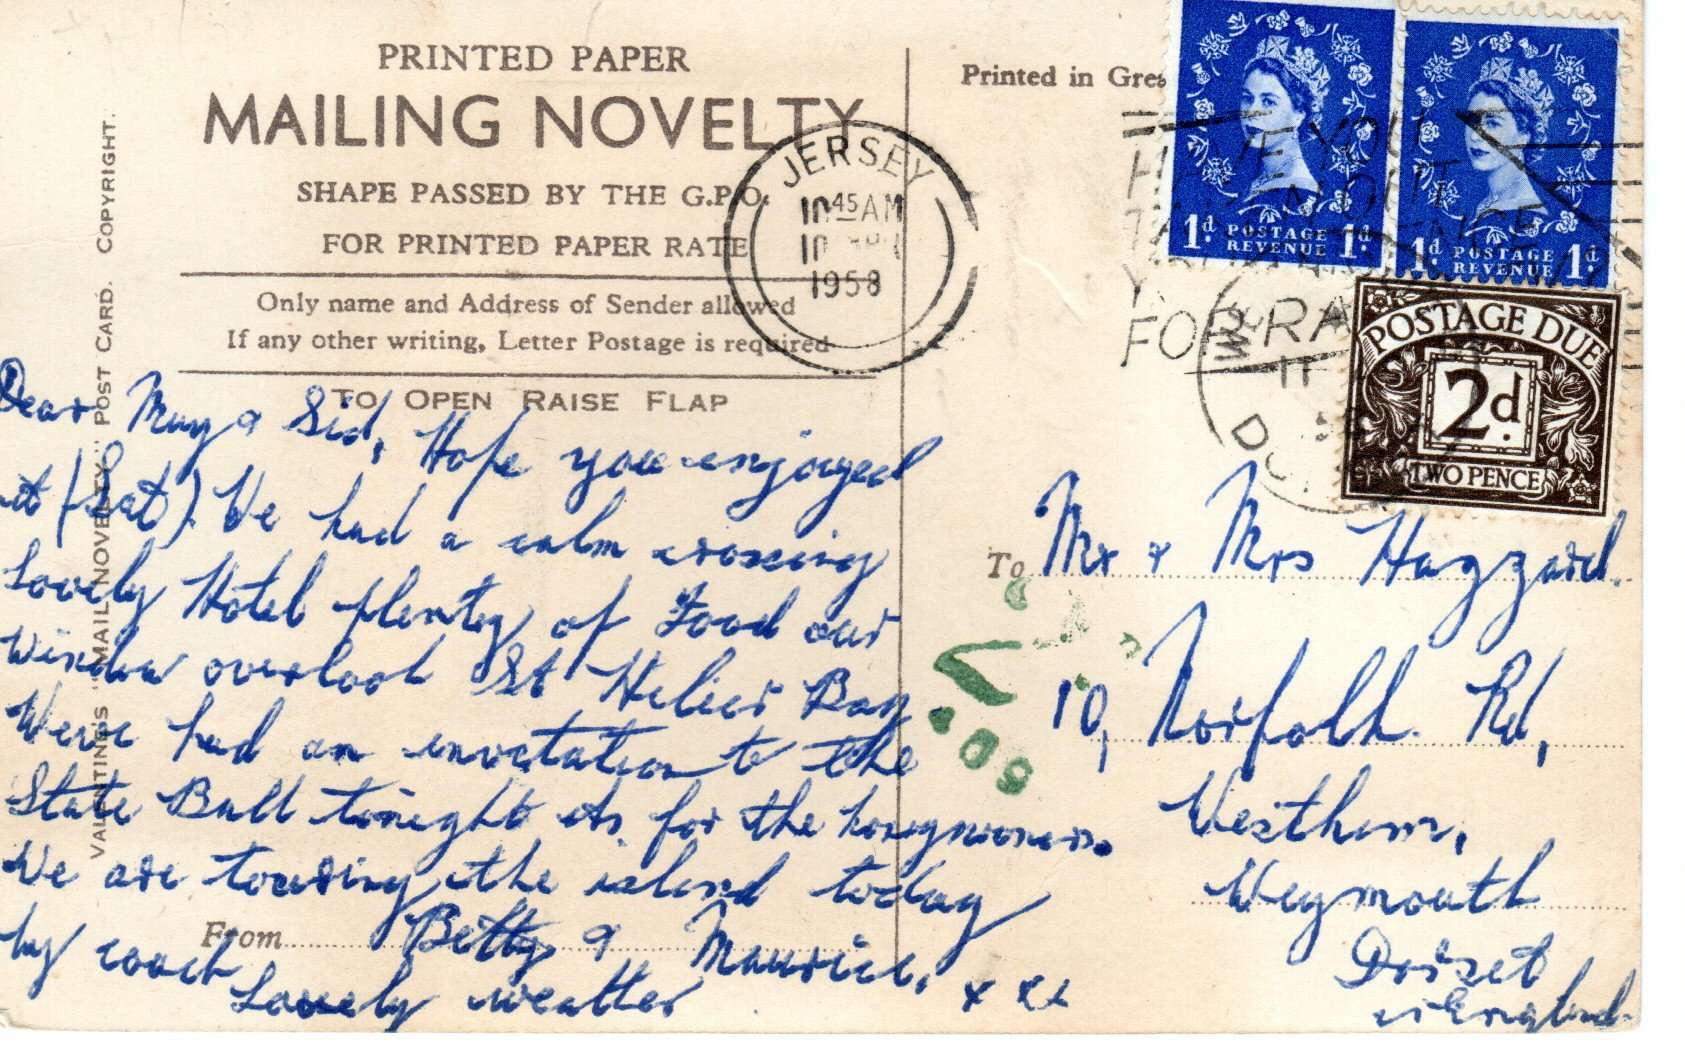 PRINTED PAPER
MAILING NOVELTY
SHAPE PASSED BY THE G.P.O.
FOR PRINTED PAPER RATE
Only name and Address of Sender allowed
If any other writing, Letter Postage is required
TO OPEN RAISE FLAP
VALENTINE'S "MAIL NOVELTY" POST CARD. COPYRIGHT.
Dear May & Sid, Hope you enjoyed
it (Sat). We had a calm crossing
Lovely Hotel plenty of Food our
window overlook St Helier Bay
Weve had an invatation to the
State Ball tonight its for the honeymooners.
We are touring the island today
by coach
From
Betty & Maurice. x x x
Lovely weather
JERSEY
10 45 AM
10
1958
Printed in Gre
HAVE YOU
FOR RA
1d. POSTAGE REVENUE 1d.
1d. POSTAGE REVENUE 1d.
POSTAGE DUE
2d.
TWO PENCE
11
58
To Mr & Mrs Hazzard.
10, Norfolk Rd,
Westham,
Weymouth
Dorset
England.